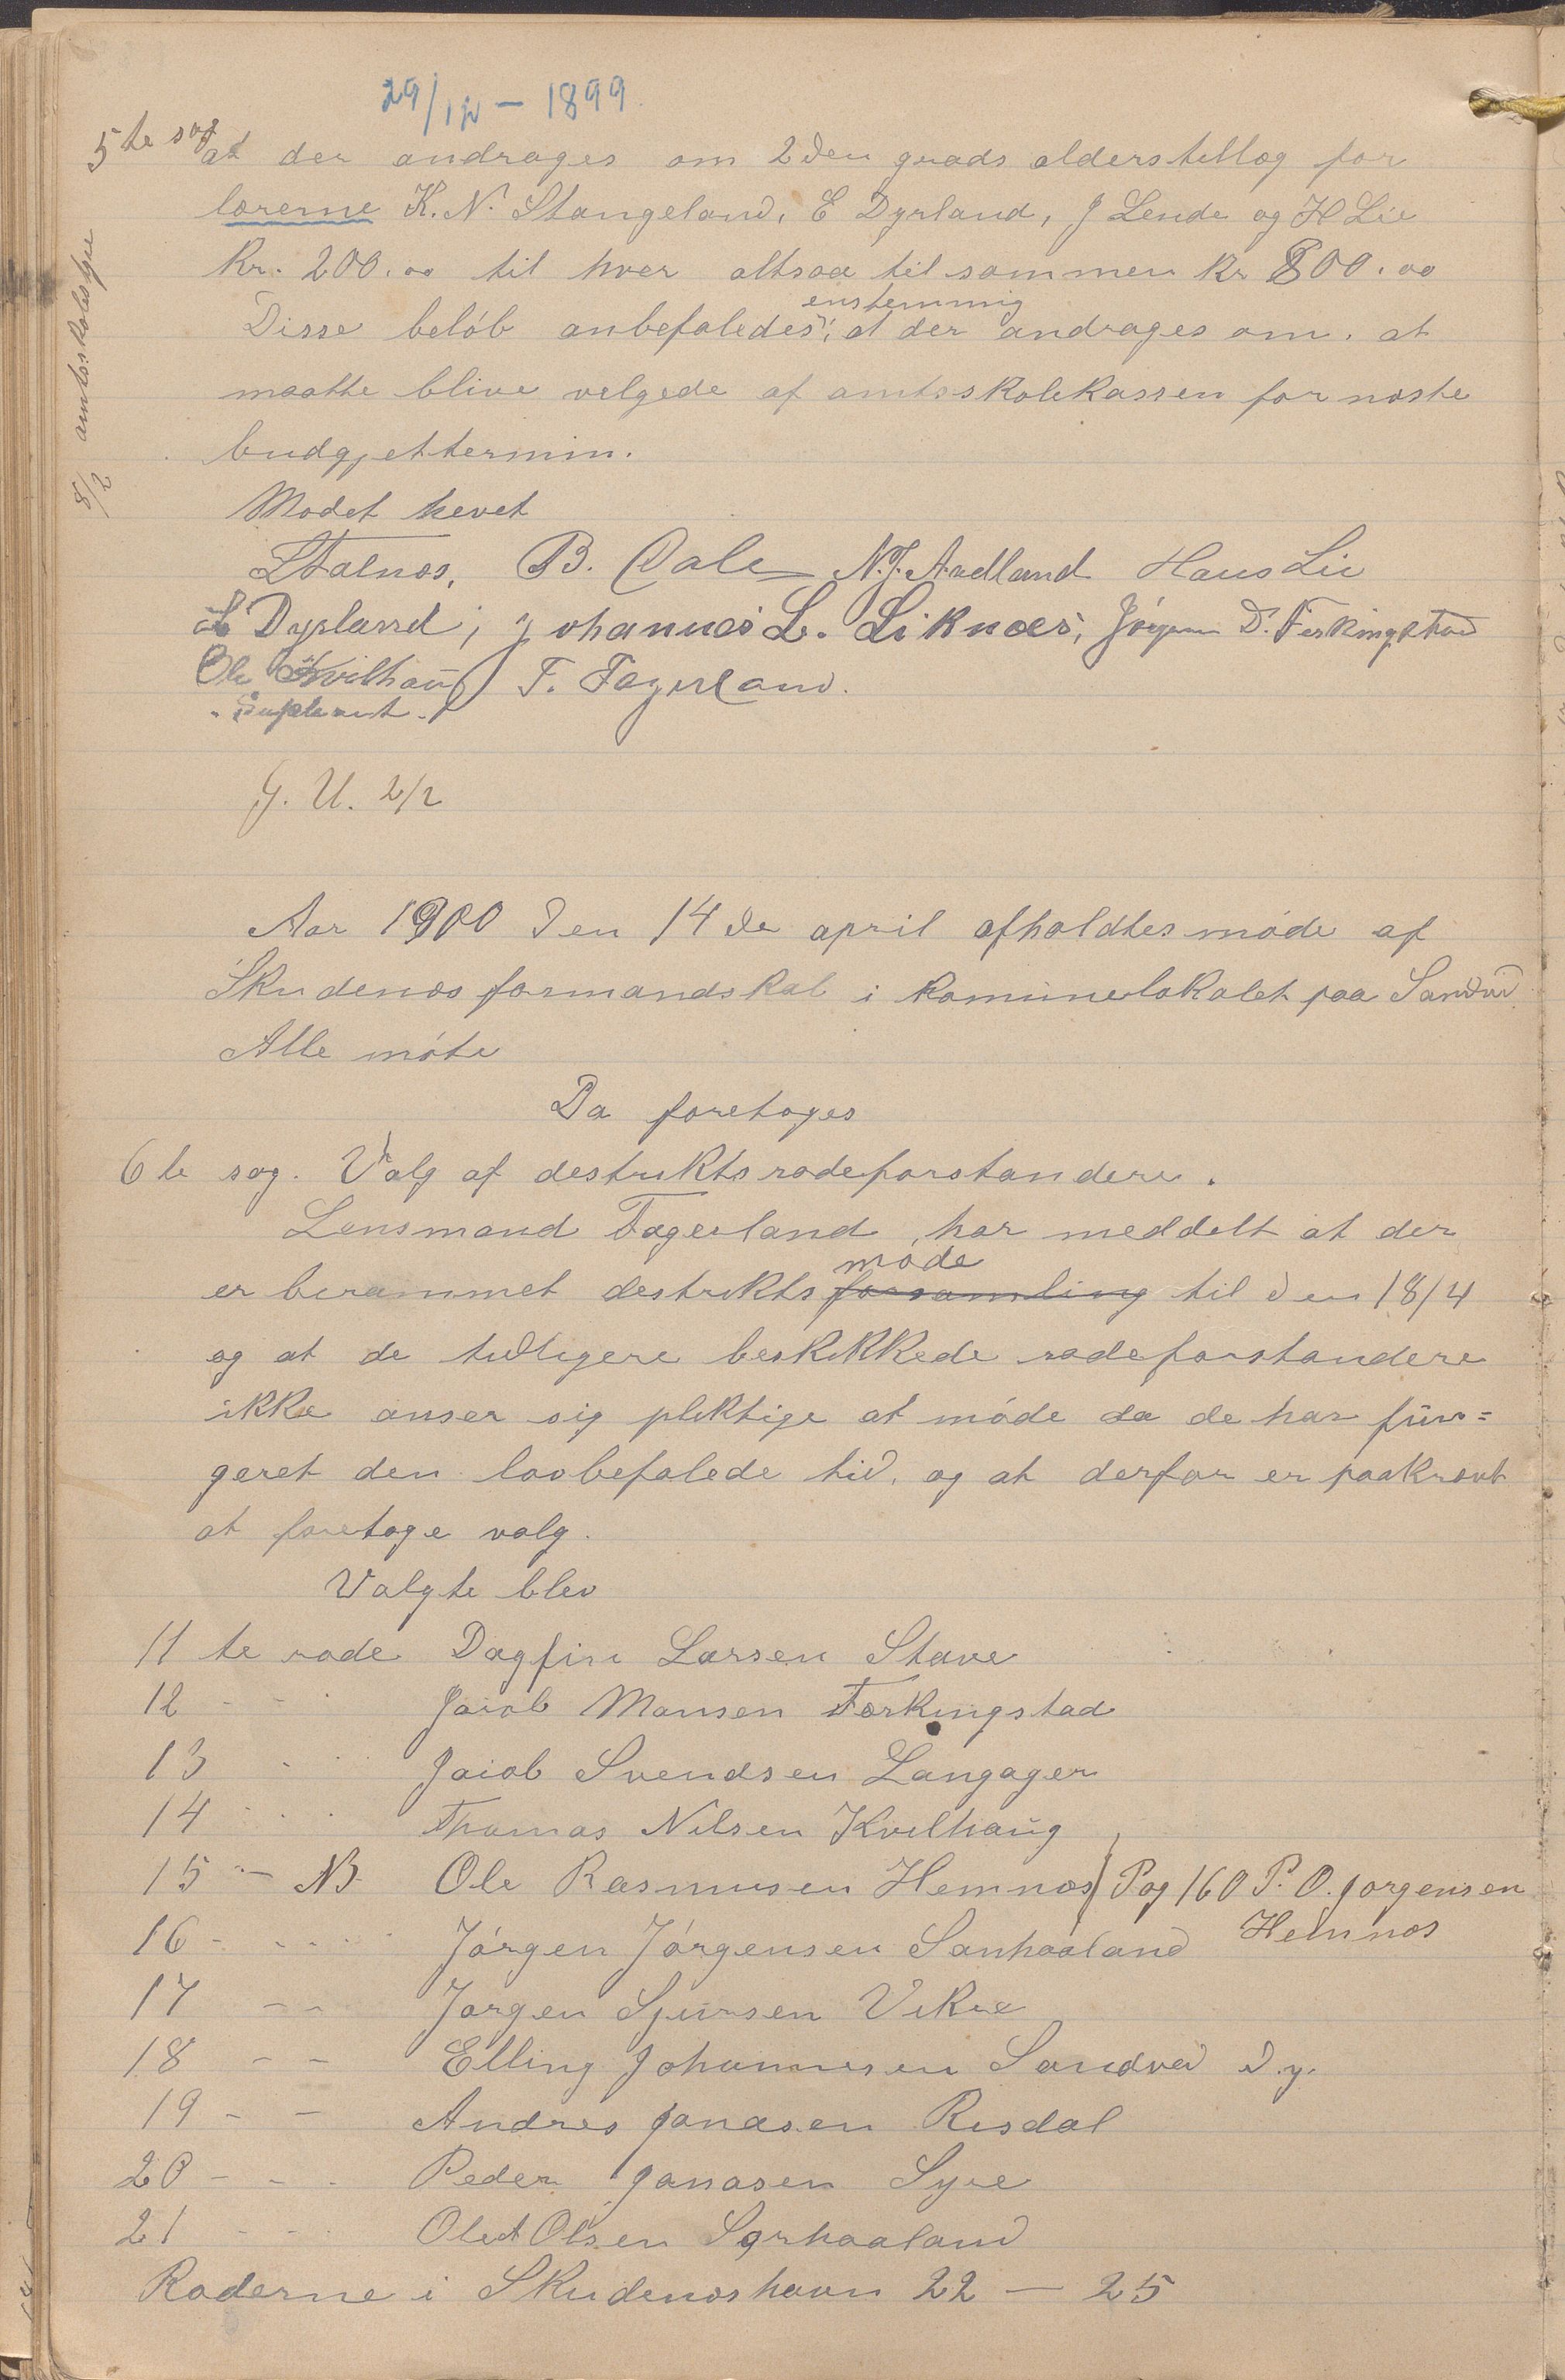 29/12 - 1899
5te sag at der andrages om 2den grads alderstillæg for
lærerne K. N. Stangeland, E Dyrland, J Lende og H Lie
Kr. 200.00 til hver altsaa tilsammen Kr 800.00
enstemmig
Disse beløb anbefaledes, at der andrages om, at
maatte blive velgede af amtsskolekassen for næste
budgjettermin.
Mødet hevet
L Falnæs, B. Dale N. J. Aadland Hans Lie
E Dyrland, Johannes L. Liknæs, Jørgen D. Ferkingstad
Ole Kvilhaug F. Fagerland.
Suplerant.
G. U. 2/2
8/2 amtsskolestyre
Aar 1900 den 14de april afholdtes møde af
Skudenæs formandskab i Komunelokalet paa Sandvid
Alle møte
Da foretoges
6te sag. Valg af destrikts rodeforstandere.
Lensmand Fagerland har meddelt at der
møde
er berammet destrikts forsamling til den 18/4
og at de tidligere beskikkede rodeforstandere
ikke anser sig pliktige at møde da de har fun=
geret den lovbefalede tid, og at derfor er paakrævt
at foretage valg.
Valgte blev
11te rode Dagfin Larsen Stave
12 - - Jacob Monsen Ferkingstad
13 - - Jacob Svendsen Langager
14 - - Thomas Nilsen Kvilhaug
15 - NB Ole Rasmusen Hemnæs) Pag 160 P. O. Jørgensen
Hemnæs
16 - - - Jørgen Jørgensen Sanhaaland
17 - - Jørgen Sjursen Vikre
18 - - Elling Johannesen Sandved d.y.
19 - - Andres Jonasen Risdal
20 - - - Peder Jonasen Syre
21 - - - Olai Olsen Sørhaaland
Roderne i Skudenæshavn 22 - 25